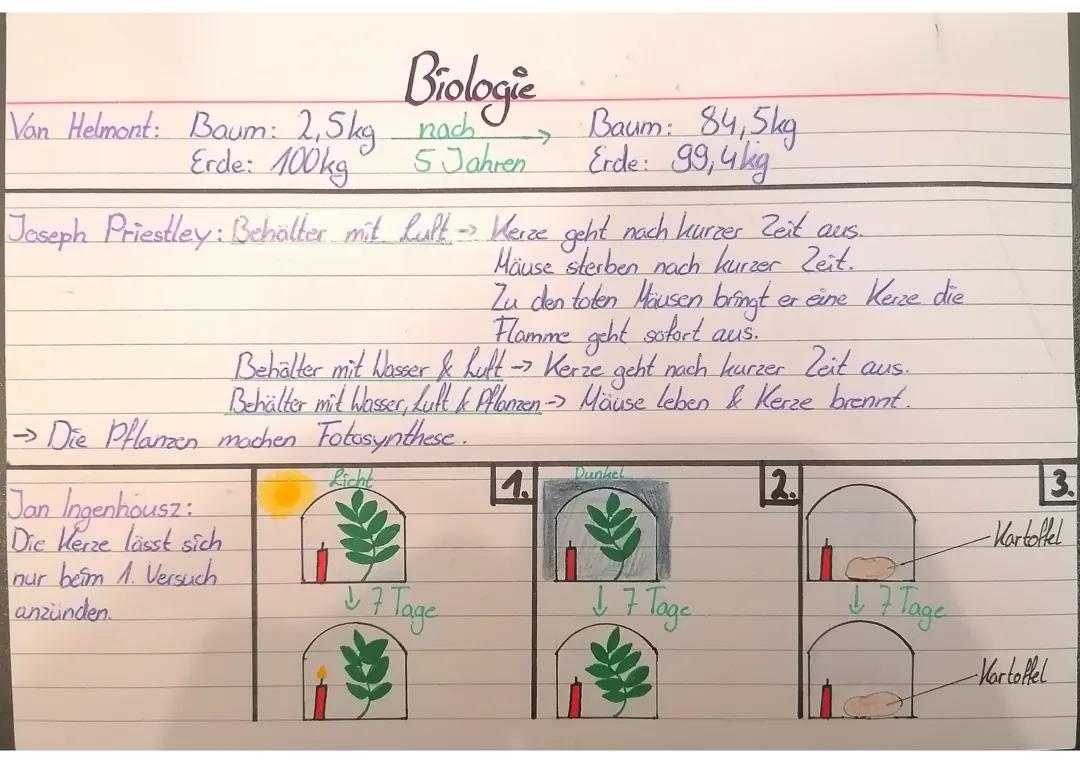 Biologie
Van Helmont: Baum: 2,5kg nach Baum: 84,5kg
Erde: 100kg 5 Jahren Erde: 99,4kg
Joseph Priestley: Behälter mit Luft -> Kerze geht nach kurzer Zeit aus.
Mäuse sterben nach kurzer Zeit.
Zu den toten Mäusen bringt er eine Kerze die
Flamme geht sofort aus.
Behälter mit Wasser & Luft -> Kerze geht nach kurzer Zeit aus.
Behälter mit Wasser, Luft & Pflanzen -> Mäuse leben & Kerze brennt.
-> Die Pflanzen machen Fotosynthese.
Jan Ingenhousz:
Die Kerze lässt sich
nur beim 1. Versuch
anzünden.
Licht 1.
↓ 7 Tage
Dunkel 2.
↓ 7 Tage
3.
Kartoffel
↓ 7 Tage
Kartoffel